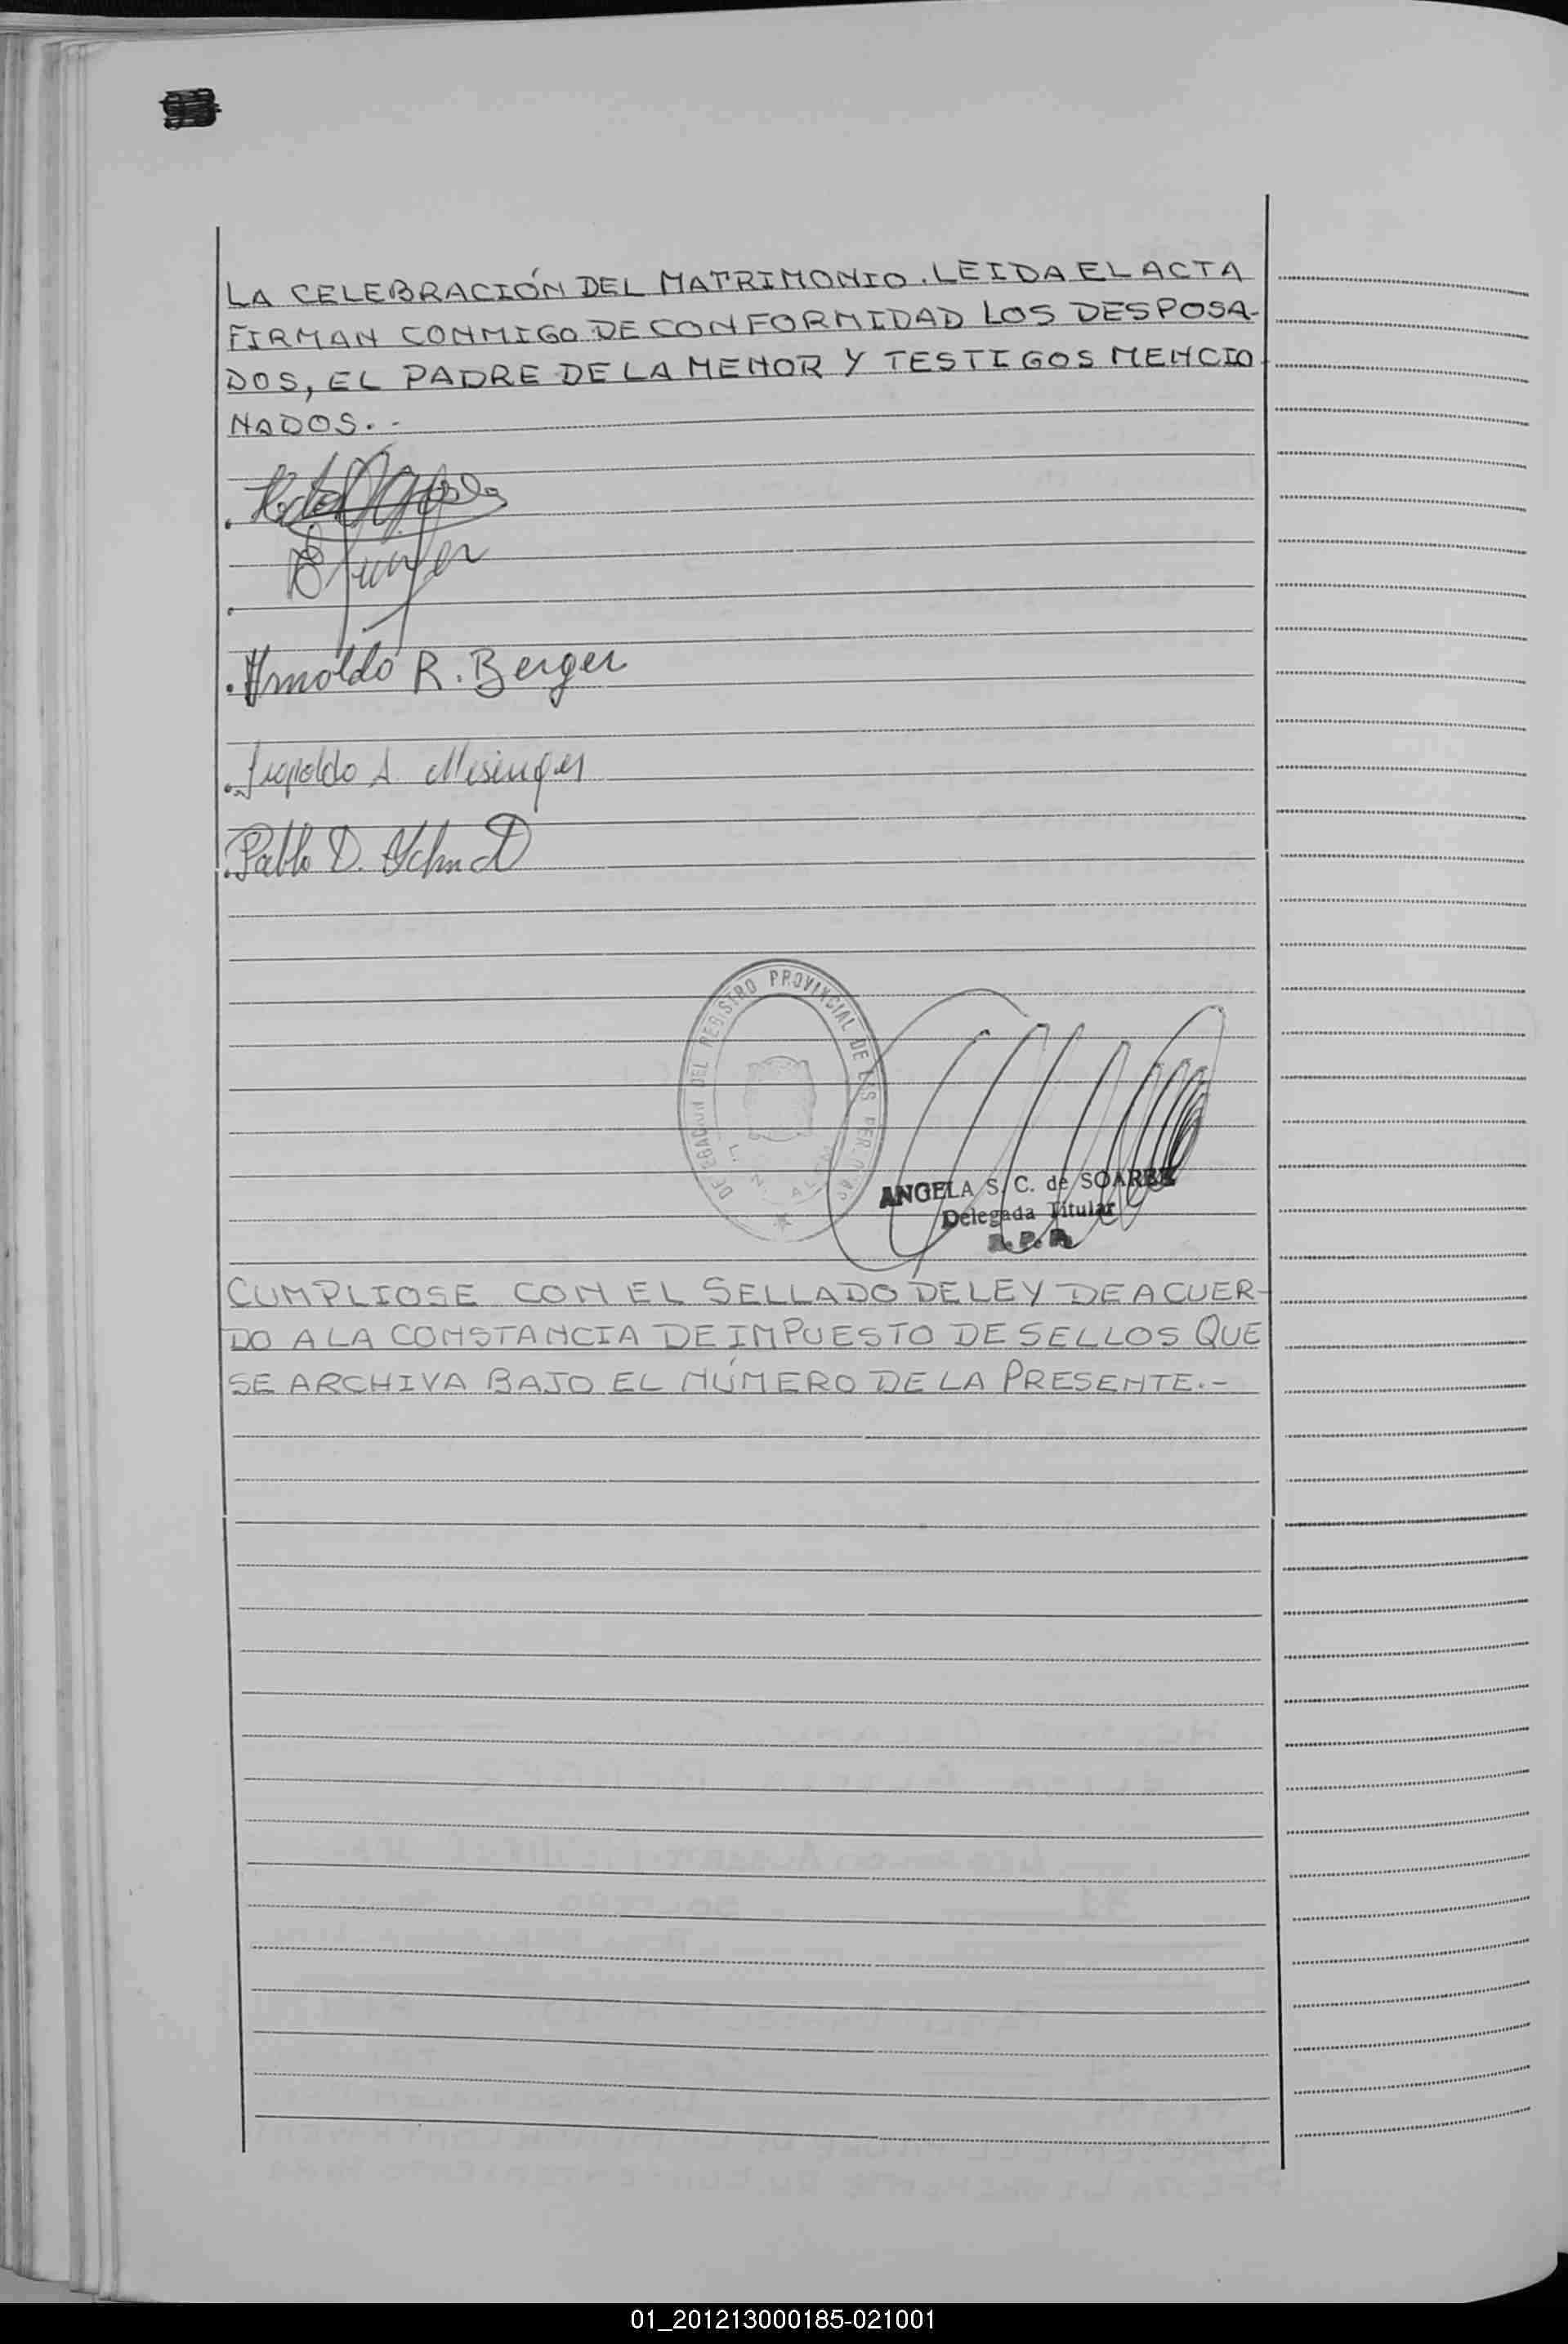 LA CELEBRACIÓN DEL MATRIMONIO. LEIDA EL ACTA
FIRMAN CONMIGO DE CONFORMIDAD LOS DESPOSA-
DOS, EL PADRE DE LA MENOR Y TESTIGOS MENCIO
NADOS.-
Arnoldo R. Berger
Leopoldo A. Misinger
Pablo D. Schmid
DELEGACION DEL REGISTRO PROVINCIAL DE LAS PERSONAS
L. N. ALEM
ANGELA S. C. de SOAREZ
Delegada Titular
R. P. P.
CUMPLIOSE CON EL SELLADO DE LEY DE ACUER-
DO A LA CONSTANCIA DE IMPUESTO DE SELLOS QUE
SE ARCHIVA BAJO EL NÚMERO DE LA PRESENTE.-
01_201213000185-021001